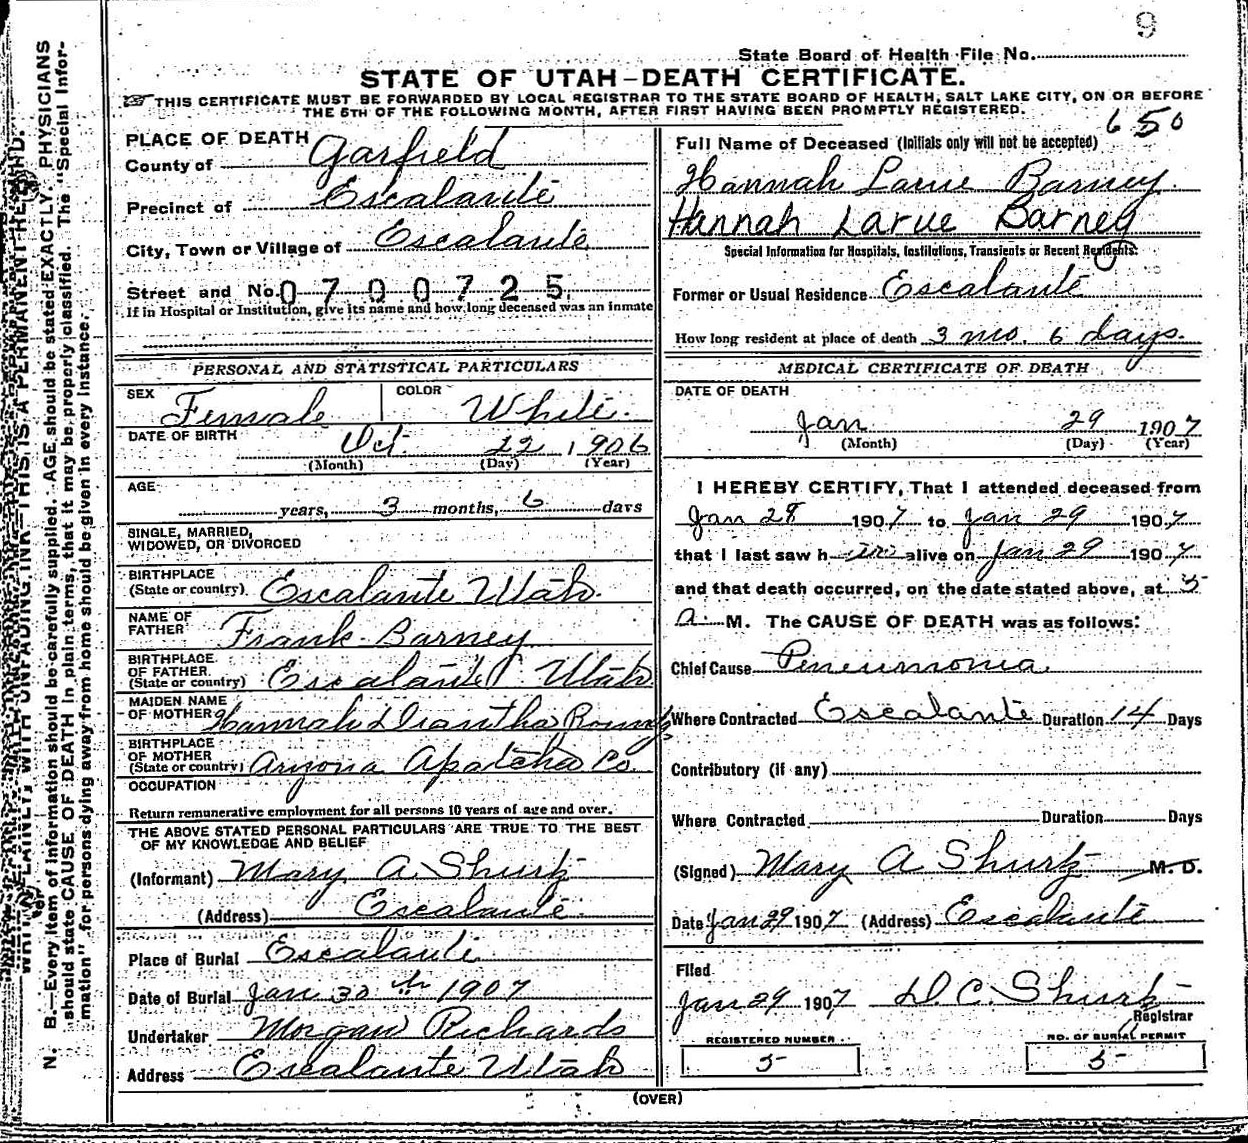 9
State Board of Health File No.
STATE OF UTAH—DEATH CERTIFICATE.
THIS CERTIFICATE MUST BE FORWARDED BY LOCAL REGISTRAR TO THE STATE BOARD OF HEALTH, SALT LAKE CITY, ON OR BEFORE
THE 5TH OF THE FOLLOWING MONTH, AFTER FIRST HAVING BEEN PROMPTLY REGISTERED.
650
PLACE OF DEATH
County of Garfield
Precinct of Escalante
City, Town or Village of Escalante
Street and No. 0700725
If in Hospital or Institution, give its name and how long deceased was an inmate
Full Name of Deceased (Initials only will not be accepted)
Hannah Larue Barney
Hannah Larue Barney
Special Information for Hospitals, Institutions, Transients or Recent Residents:
Former or Usual Residence Escalante
How long resident at place of death 3 mo. 6 days.
PERSONAL AND STATISTICAL PARTICULARS
SEX Female COLOR White.
DATE OF BIRTH Oct. 22 1906
(Month) (Day) (Year)
AGE
years, 3 months, 6 days
SINGLE, MARRIED,
WIDOWED, OR DIVORCED
BIRTHPLACE
(State or country) Escalante Utah.
NAME OF
FATHER Frank Barney
BIRTHPLACE
OF FATHER
(State or country) Escalante Utah
MAIDEN NAME
OF MOTHER Hannah Diantha Roundy
BIRTHPLACE
OF MOTHER
(State or country) Aryona Apatcha Co
OCCUPATION
Return remunerative employment for all persons 10 years of age and over.
THE ABOVE STATED PERSONAL PARTICULARS ARE TRUE TO THE BEST
OF MY KNOWLEDGE AND BELIEF
(Informant) Mary A Shurtz
(Address) Escalante.
Place of Burial Escalante
Date of Burial Jan 30th 1907
Undertaker Morgan Richards
Address Escalante Utah
MEDICAL CERTIFICATE OF DEATH
DATE OF DEATH
Jan 29 1907
(Month) (Day) (Year)
I HEREBY CERTIFY, That I attended deceased from
Jan 28 1907 to Jan 29 1907
that I last saw h er alive on Jan 29 1907
and that death occurred, on the date stated above, at 5
a. M. The CAUSE OF DEATH was as follows:
Chief Cause Peneumonia
Where Contracted Escalante Duration 14 Days
Contributory (if any)
Where Contracted Duration Days
(Signed) Mary A Shurtz M. D.
Date Jan 29 1907 (Address) Escalante
Filed
Jan 29 1907 D. C. Shurtz
Registrar
REGISTERED NUMBER
5
NO. OF BURIAL PERMIT
5
(OVER)
N. B.—Every item of information should be carefully supplied. AGE should be stated EXACTLY. PHYSICIANS
should state CAUSE OF DEATH in plain terms, that it may be properly classified. The "Special Infor-
mation" for persons dying away from home should be given in every instance.
WITH UNFADING INK—THIS IS A PERMANENT RECORD.